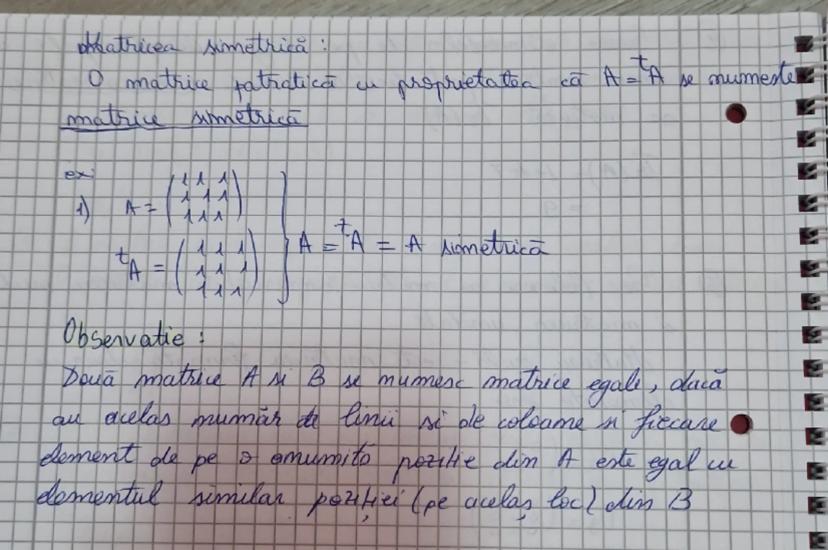 Matricea simetrică :
O matrice patratică cu proprietatea că A = ᵗA se numeste
matrice simetrică
ex:
1) A = (1 1 1
1 1 1
1 1 1)
ᵗA = (1 1 1
1 1 1
1 1 1)
} A = ᵗA = A simetrică
Observatie :
Două matrice A si B se numesc matrice egale, dacă
au acelas număr de linii si de coloane si fiecare
element de pe o anumită pozitie din A este egal cu
elementul similar poziției (pe acelaș loc) din B